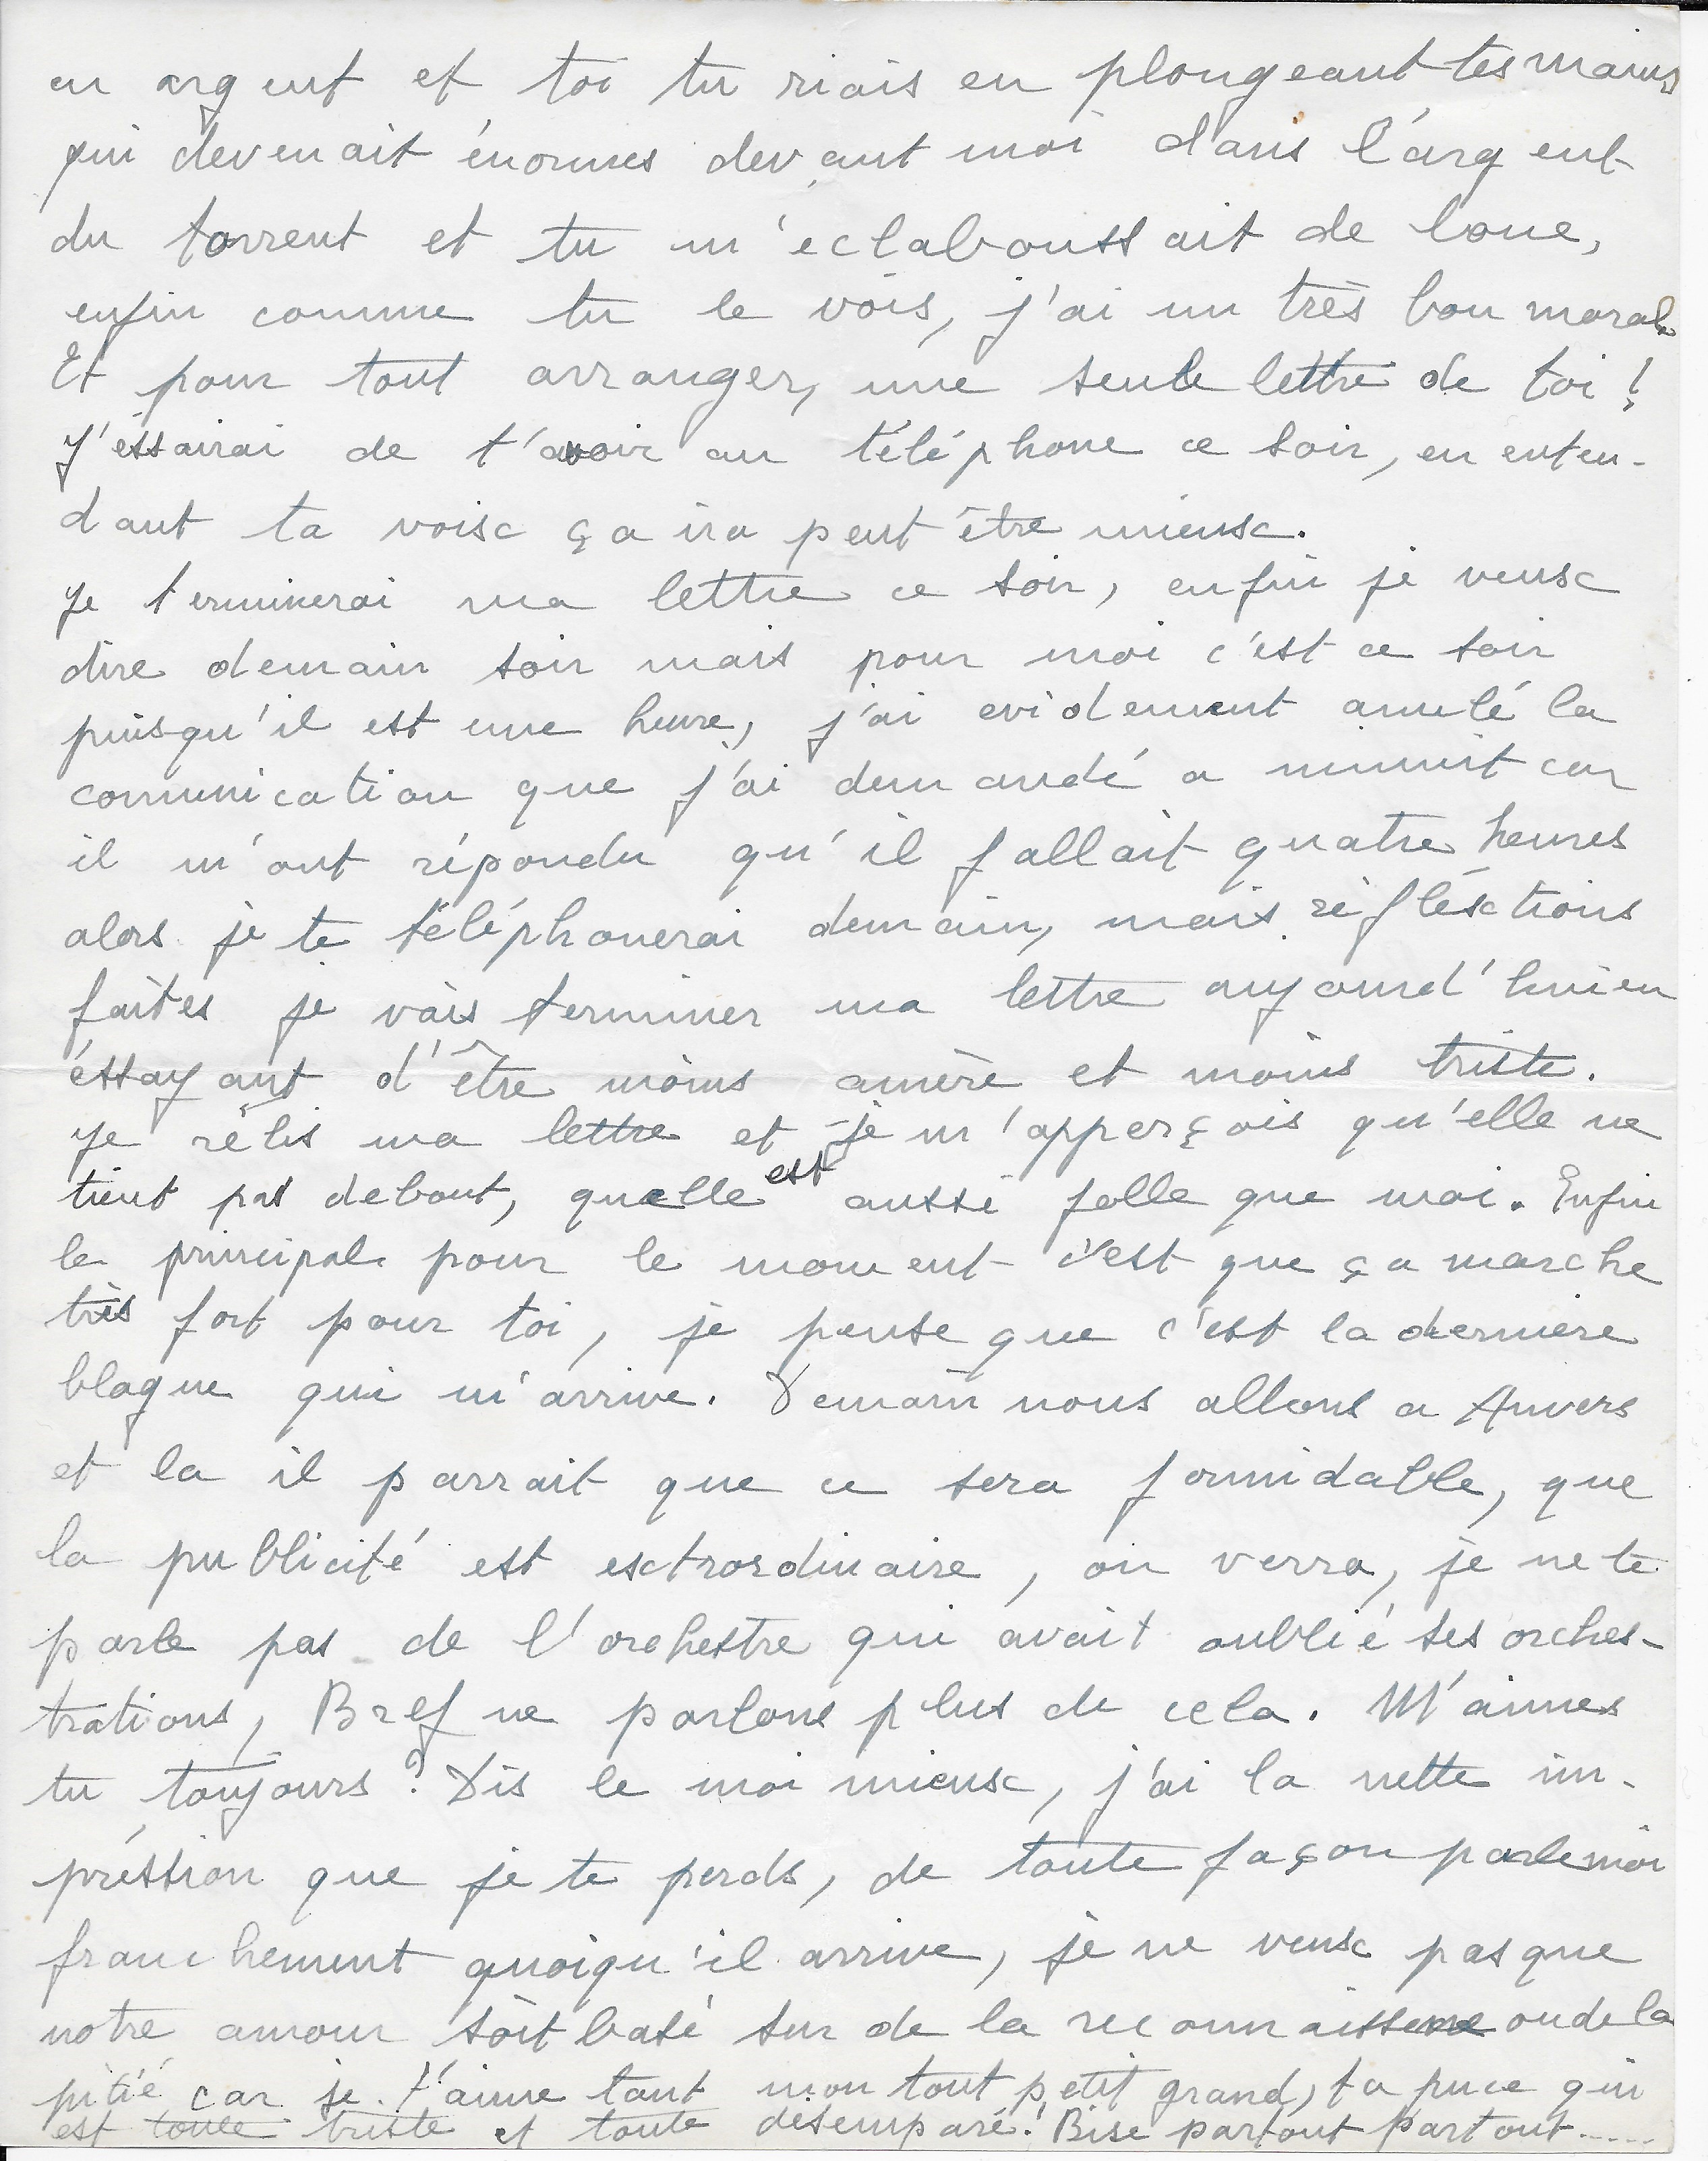 en argent et toi tu riais en plongeant tes mains
qui devenait énormes devant moi dans l'argent
du torrent et tu m'eclaboussait de boue,
enfin comme tu le vois, j'ai un très bon moral.
Et pour tout arranger, une seule lettre de toi !
J'éssairai de t'avoir au téléphone ce soir, en enten-
dant ta voix ça ira peut être mieux.
Je terminerai ma lettre ce soir, enfin je veux
dire demain soir mais pour moi c'est ce soir
puisqu'il est une heure, j'ai evidement anulé la
comunication que j'ai demandé a minuit car
il m'ont répondu qu'il fallait quatre heures
alors je te téléphonerai demain, mais réfléxctions
faites je vais terminer ma lettre aujourd'hui en
éssayant d'être moins amère et moins triste.
Je rélis ma lettre et je m'apperçois qu'elle ne
tient pas debout, quelle est aussi folle que moi. Enfin
le principal pour le moment c'est que ça marche
très fort pour toi, je pense que c'est la dernière
blague qui m'arrive. Demain nous allons a Anvers
et la il parrait que ce sera formidable, que
la publicité est extrordinaire, on verra, je ne te
parle pas de l'orchestre qui avait oublié ses orches-
trations, Bref ne parlons plus de cela. M'aimes
tu toujours ? Dis le moi mieux, j'ai la nette im-
préssion que je te perds, de toute façon parle moi
franchement quoiqu'il arrive, je ne veux pas que
notre amour soit basé sur de la reconnaissance ou de la
pitié car je t'aime tant mon tout petit grand, ta puce qui
est toute triste et toute désemparé ! Bise partout partout.....